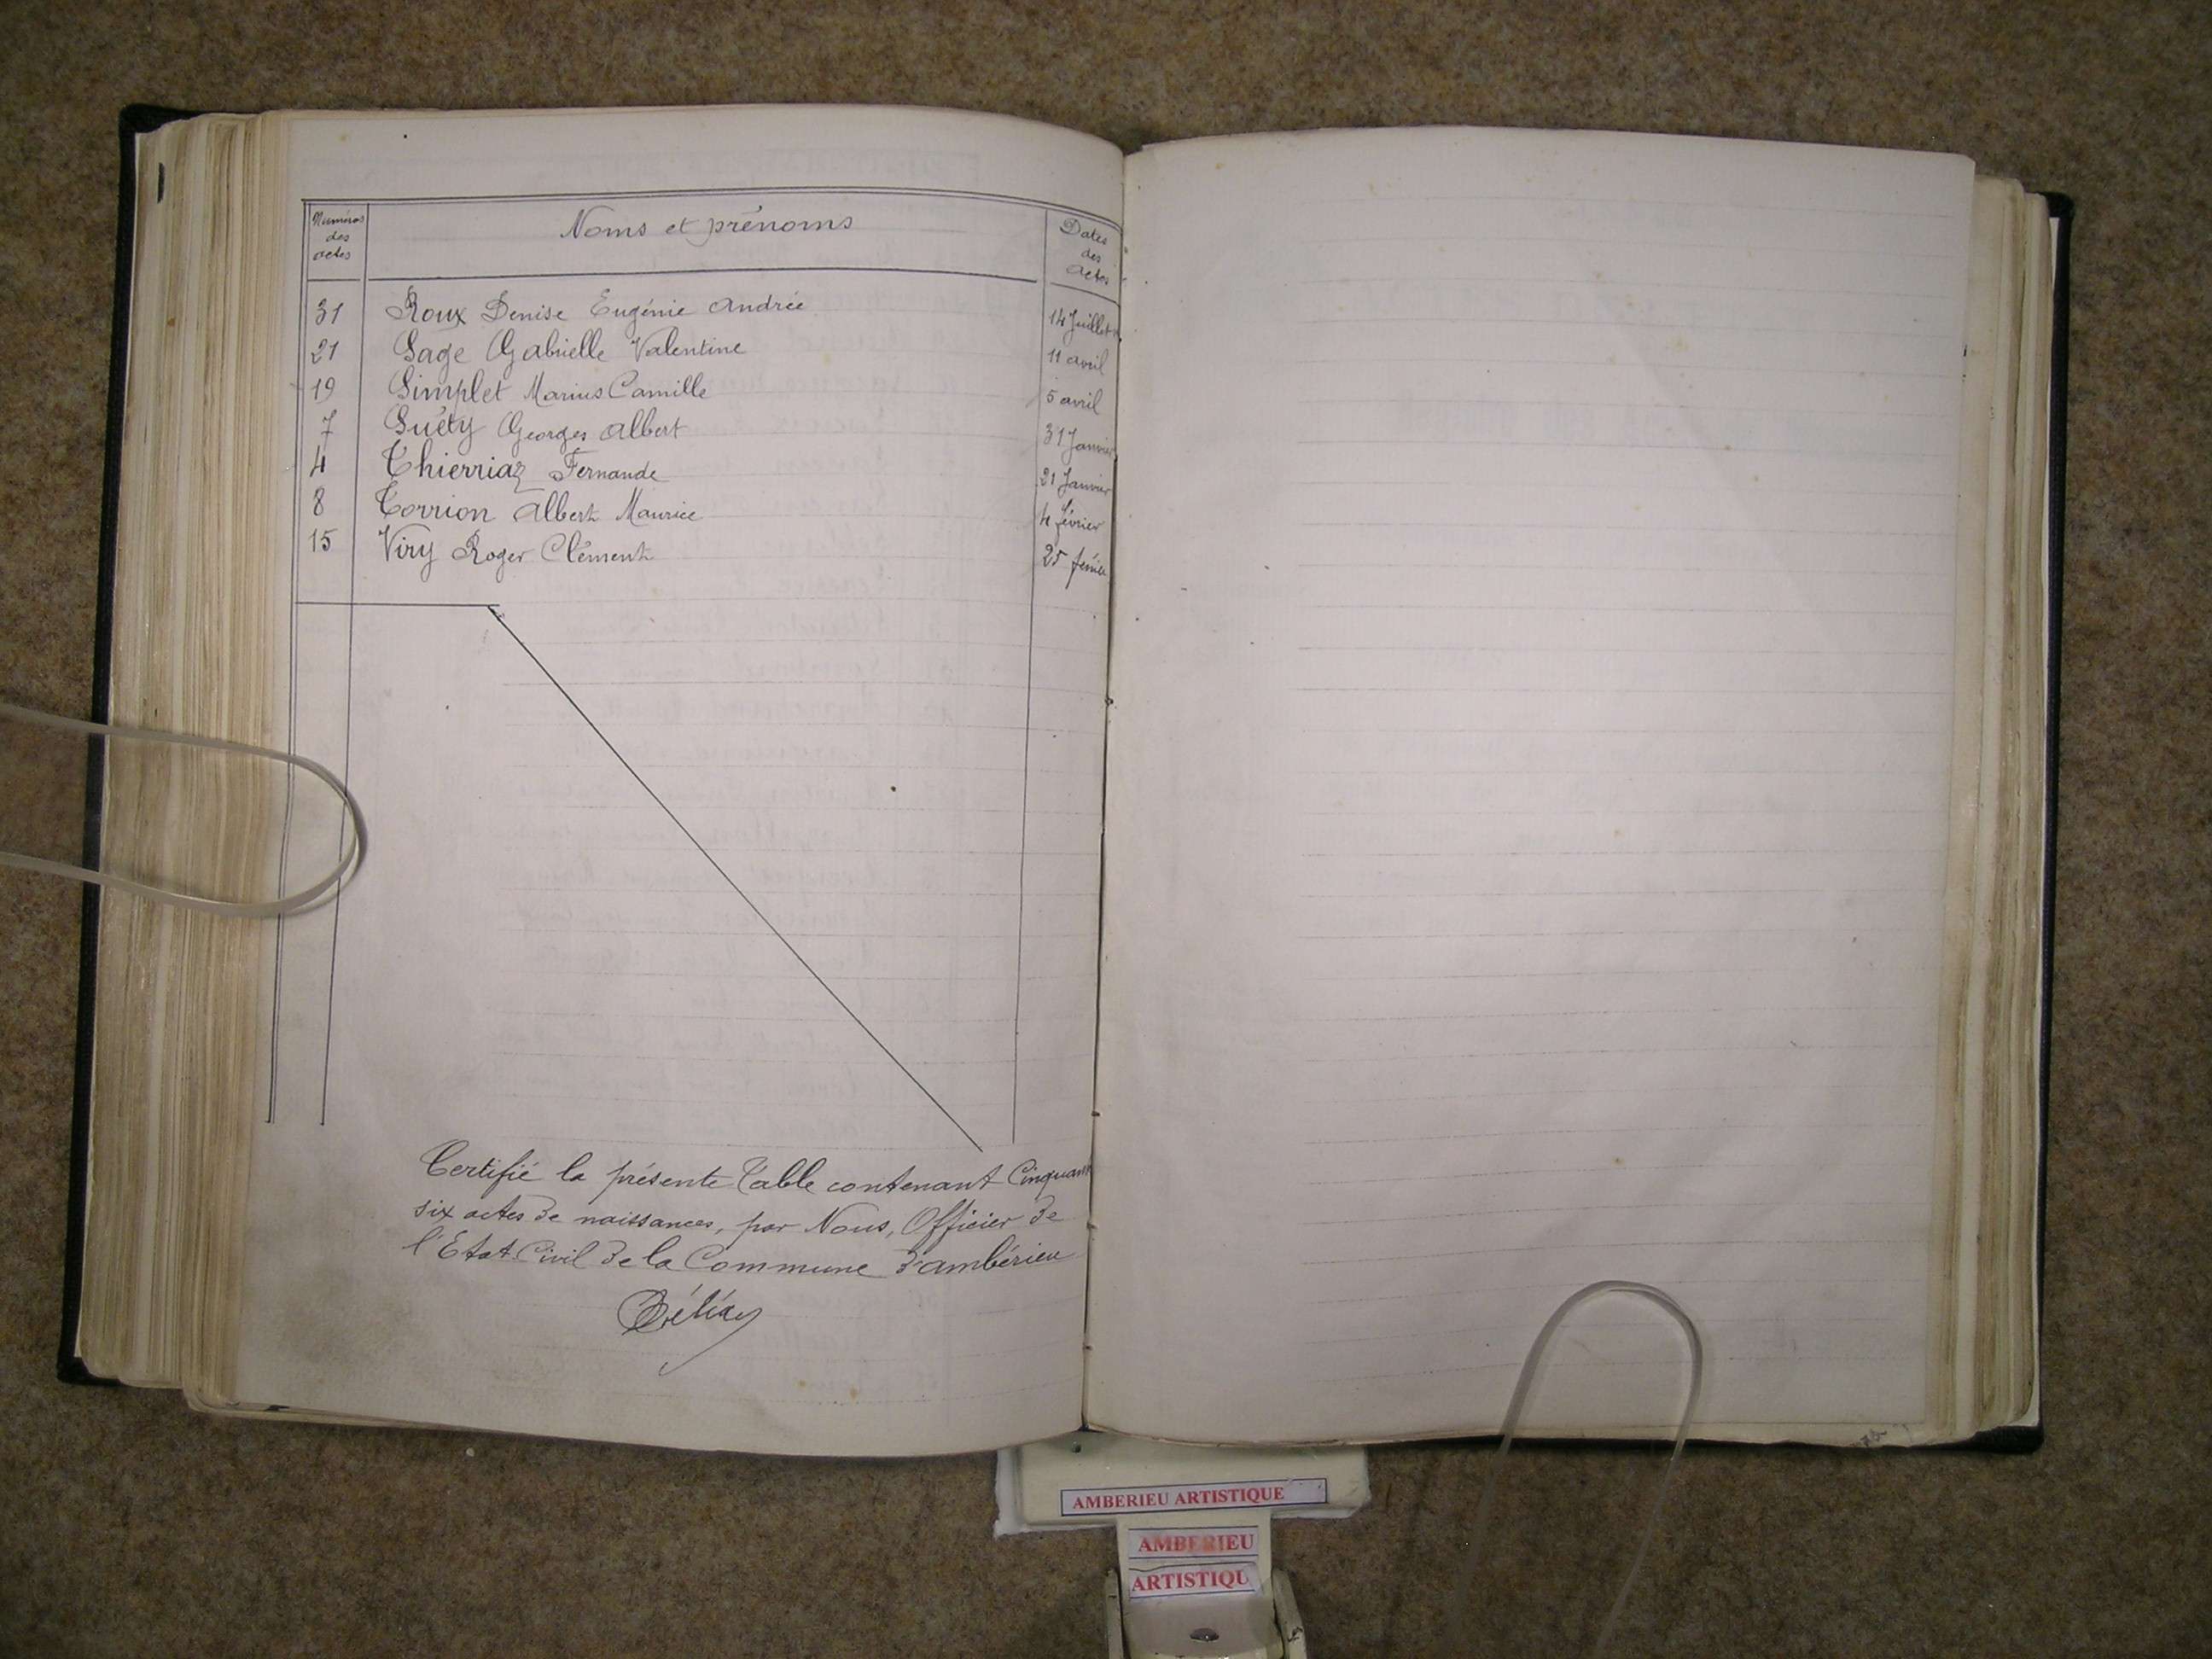 Numéros des actes Noms et prénoms Dates des actes
31 Roux Denise Eugénie Andrée 14 Juillet
21 Sage Gabrielle Valentine 11 avril
19 Simplet Marius Camille 5 avril
7 Suéty Georges Albert 31 Janvier
4 Thierriaz Fernande 21 Janvier
8 Torrion Albert Maurice 4 février
15 Viry Roger Clément 25 février
Certifié la présente Table contenant Cinquante
six actes de naissances, par Nous, Officier de
l'Etat Civil de la Commune d'ambérieu
AMBERIEU ARTISTIQUE
AMBERIEU
ARTISTIQU